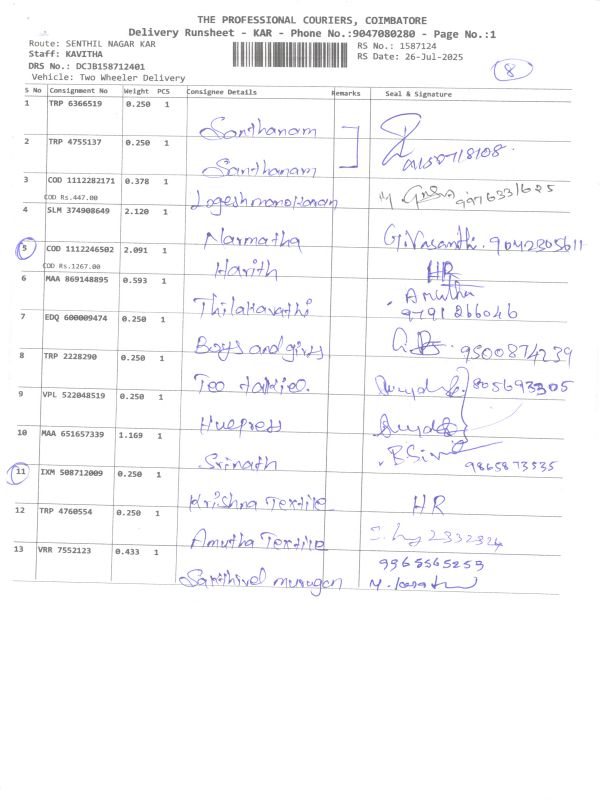 THE PROFESSIONAL COURIERS, COIMBATORE
Delivery Runsheet - KAR - Phone No.:9047080280 - Page No.:1
Route: SENTHIL NAGAR KAR
Staff: KAVITHA
RS No.: 1587124
RS Date: 26-Jul-2025
8
DRS No.: DCJB158712401
Vehicle: Two Wheeler Delivery
S No Consignment No Weight PCS Consignee Details Remarks Seal & Signature
1 TRP 6366519 0.250 1 Santhanam
2 TRP 4755137 0.250 1 Santhanam
3 COD 1112282171 0.378 1 Logeshmanoharan
COD Rs.447.00
4 SLM 374908649 2.120 1 Narmatha G.Vasanthi. 9042805611
5 COD 1112246502 2.091 1 Harith HR
COD Rs.1267.00
6 MAA 869148895 0.593 1 Thilakavathi Amutha
9791266046
7 EDQ 600009474 0.250 1 Boys and girls 9500874239
8 TRP 2228290 0.250 1 805693305
9 VPL 522048519 0.250 1
10 MAA 651657339 1.169 1 Srinath 9865873535
11 IXM 508712009 0.250 1 Krishna Textile HR
12 TRP 4760554 0.250 1 Amutha Textile 2332324
13 VRR 7552123 0.433 1 Santhivel murugan 9965565259